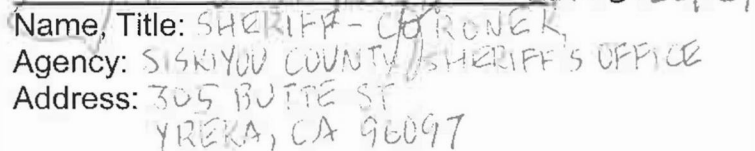 Name, Title: SHERIFF-CORONER,
Agency: SISKIYOU COUNTY SHERIFF'S OFFICE
Address: 305 BUTTE ST
YREKA, CA 96097